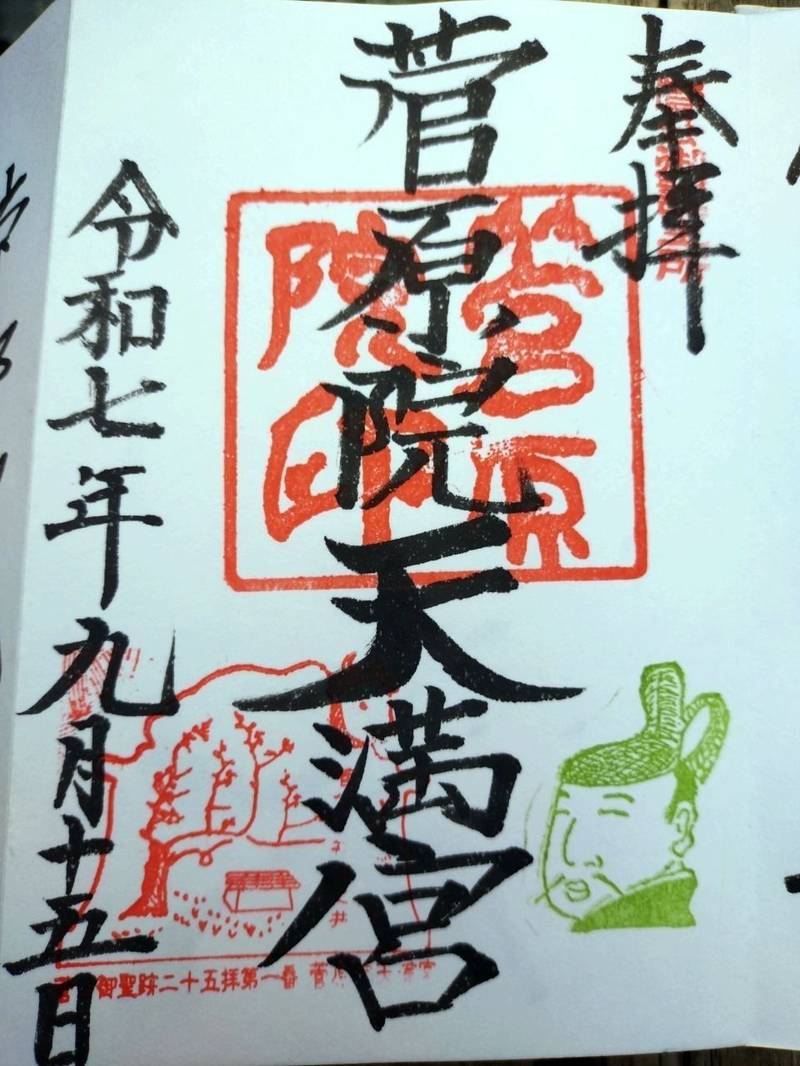 奉拝
菅原院天満宮
令和七年九月十五日
菅原
院印
御聖跡二十五拝第一番 菅原院天満宮